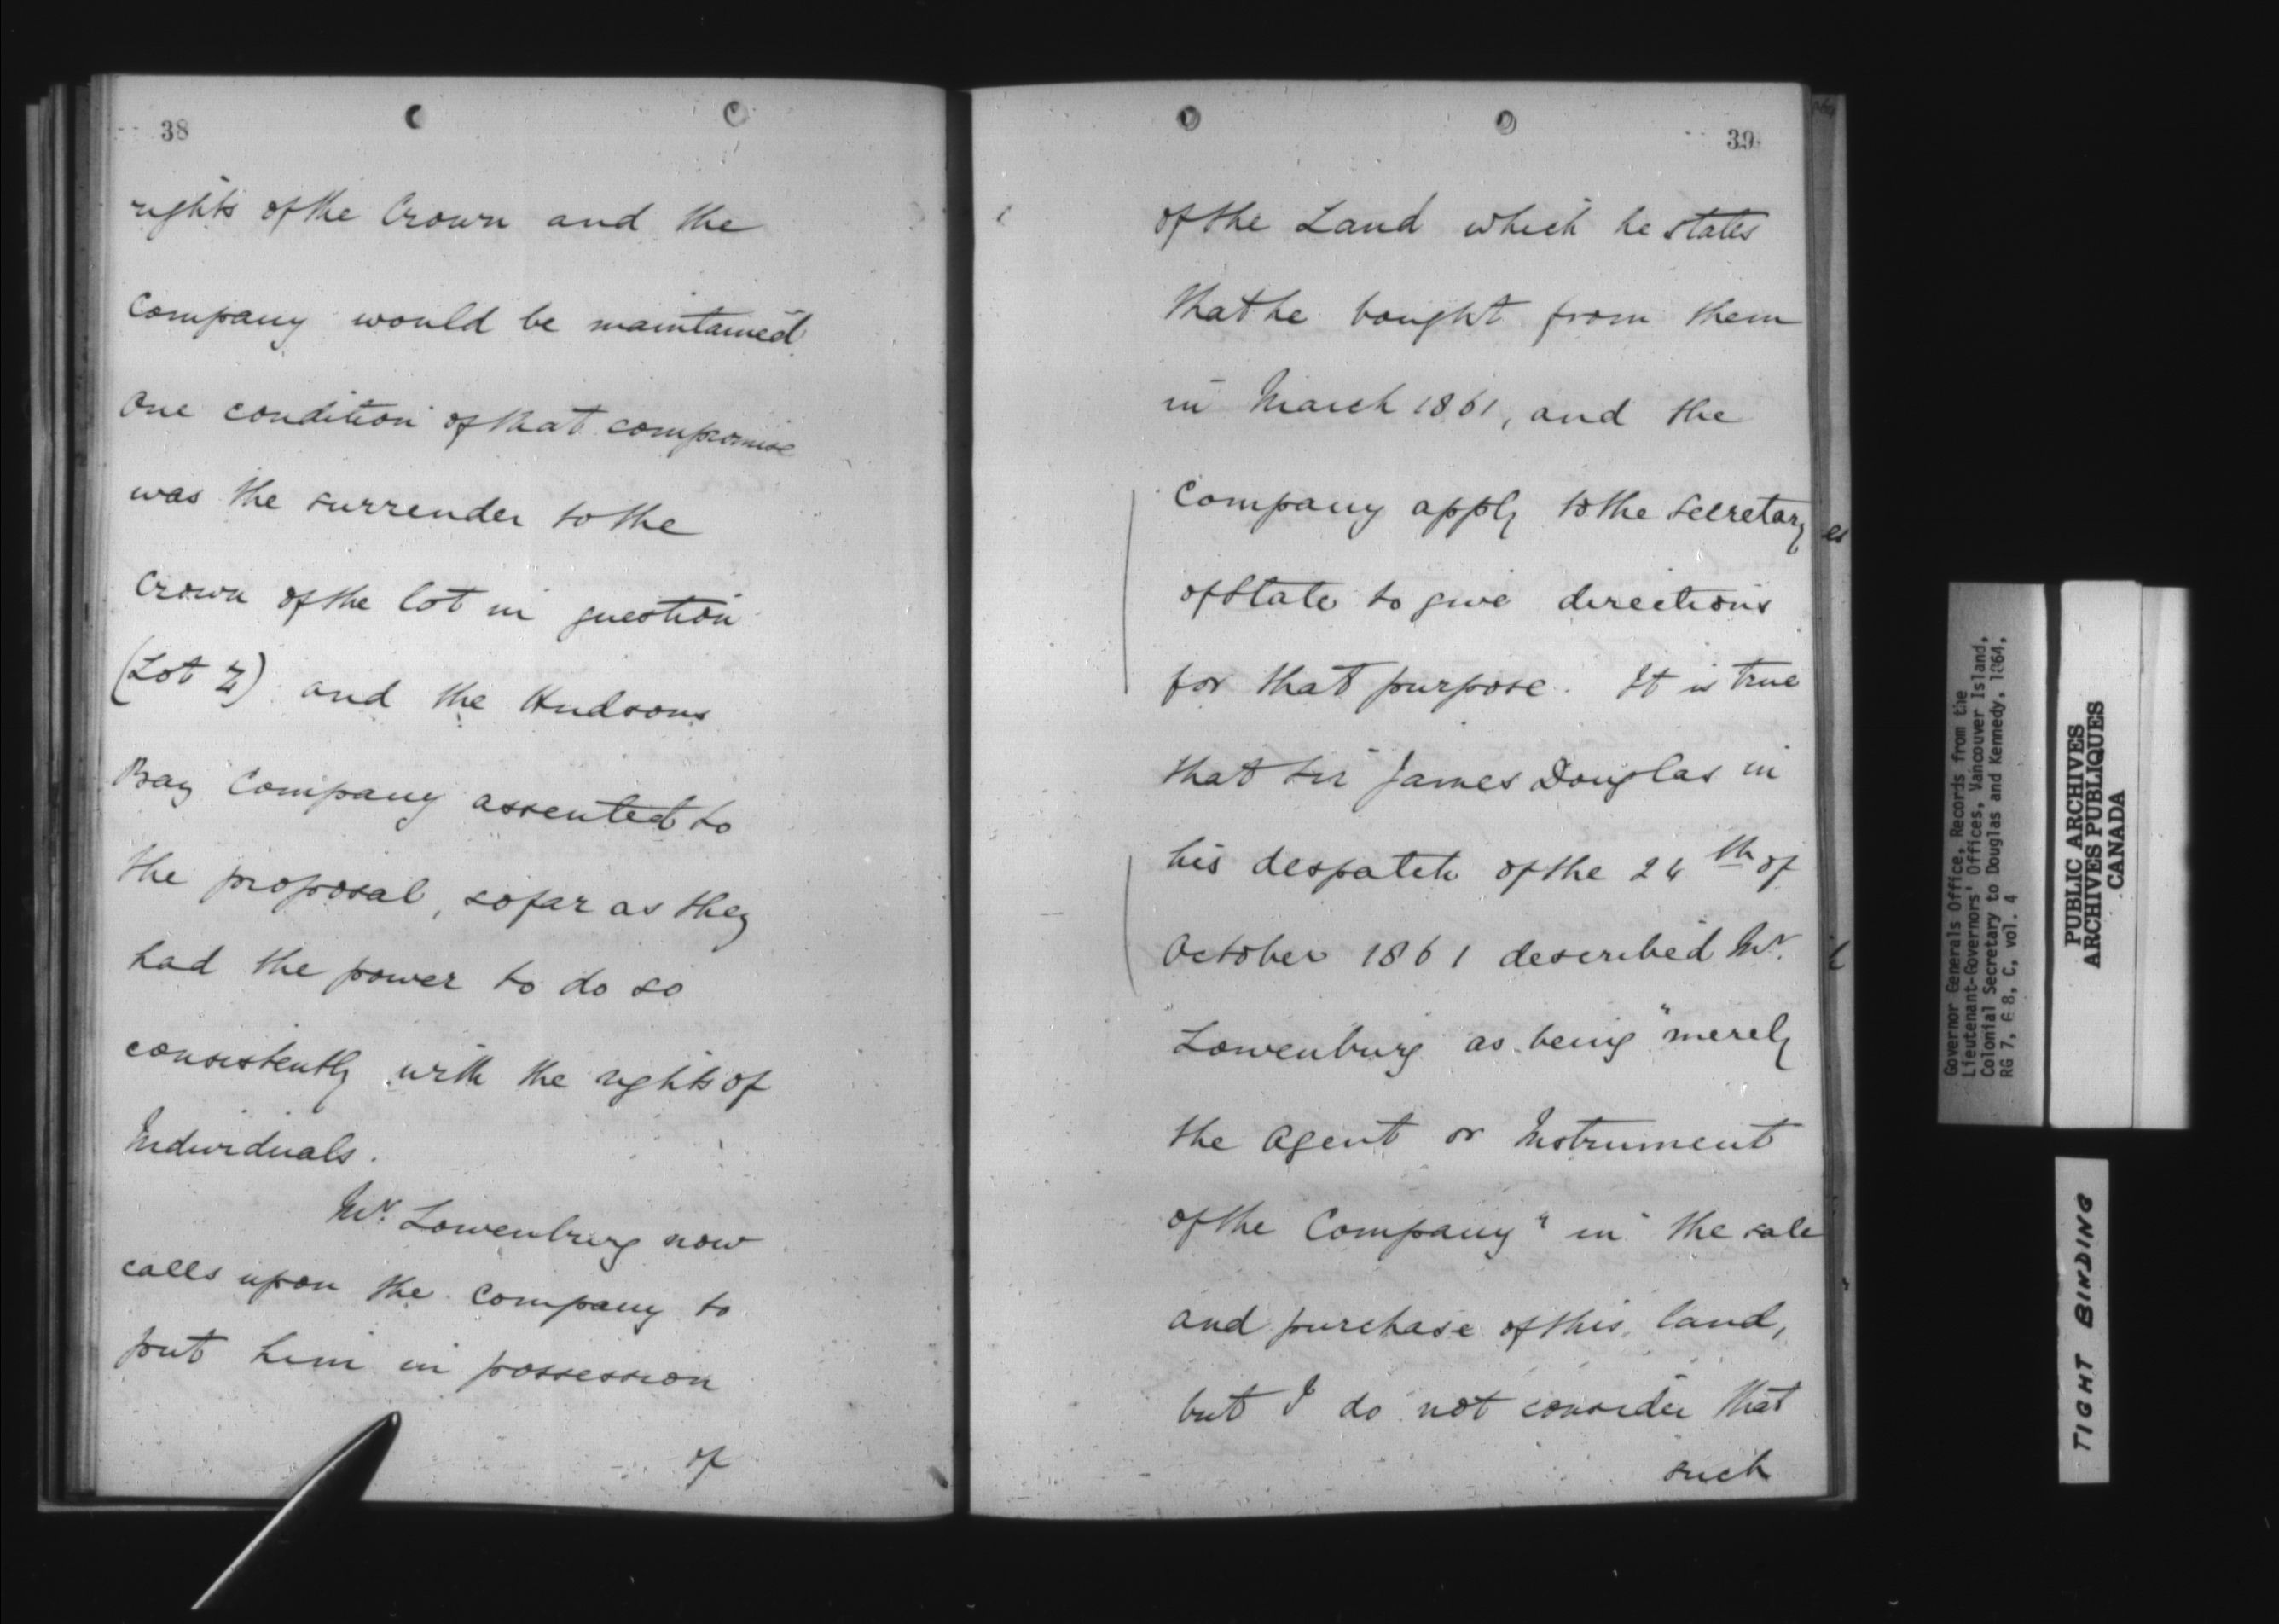 38
rights of the Crown and the
Company would be maintained.
One condition of that compromise
was the surrender to the
Crown of the lot in question
(Lot Z) and the Hudsons
Bay Company assented to
the proposal, so far as they
had the power to do so
consistently with the rights of
Individuals.
Mr. Lowenburg now
calls upon the Company to
put him in possession
of
39
of the Land which he states
that he bought from them
in March 1861, and the
Company apply to the Secretary
of State to give directions
for that purpose. It is true
that Sir James Douglas in
his despatch of the 24th of
October 1861 described Mr.
Lowenburg as being "merely
the Agent or Instrument
of the Company" in the sale
and purchase of this land,
but I do not consider that
such
Governor Generals Office, Records from the
Lieutenant-Governors' Offices, Vancouver Island,
Colonial Secretary to Douglas and Kennedy, 1864,
RG 7, G 8, C, vol. 4
PUBLIC ARCHIVES
ARCHIVES PUBLIQUES
CANADA
TIGHT BINDING